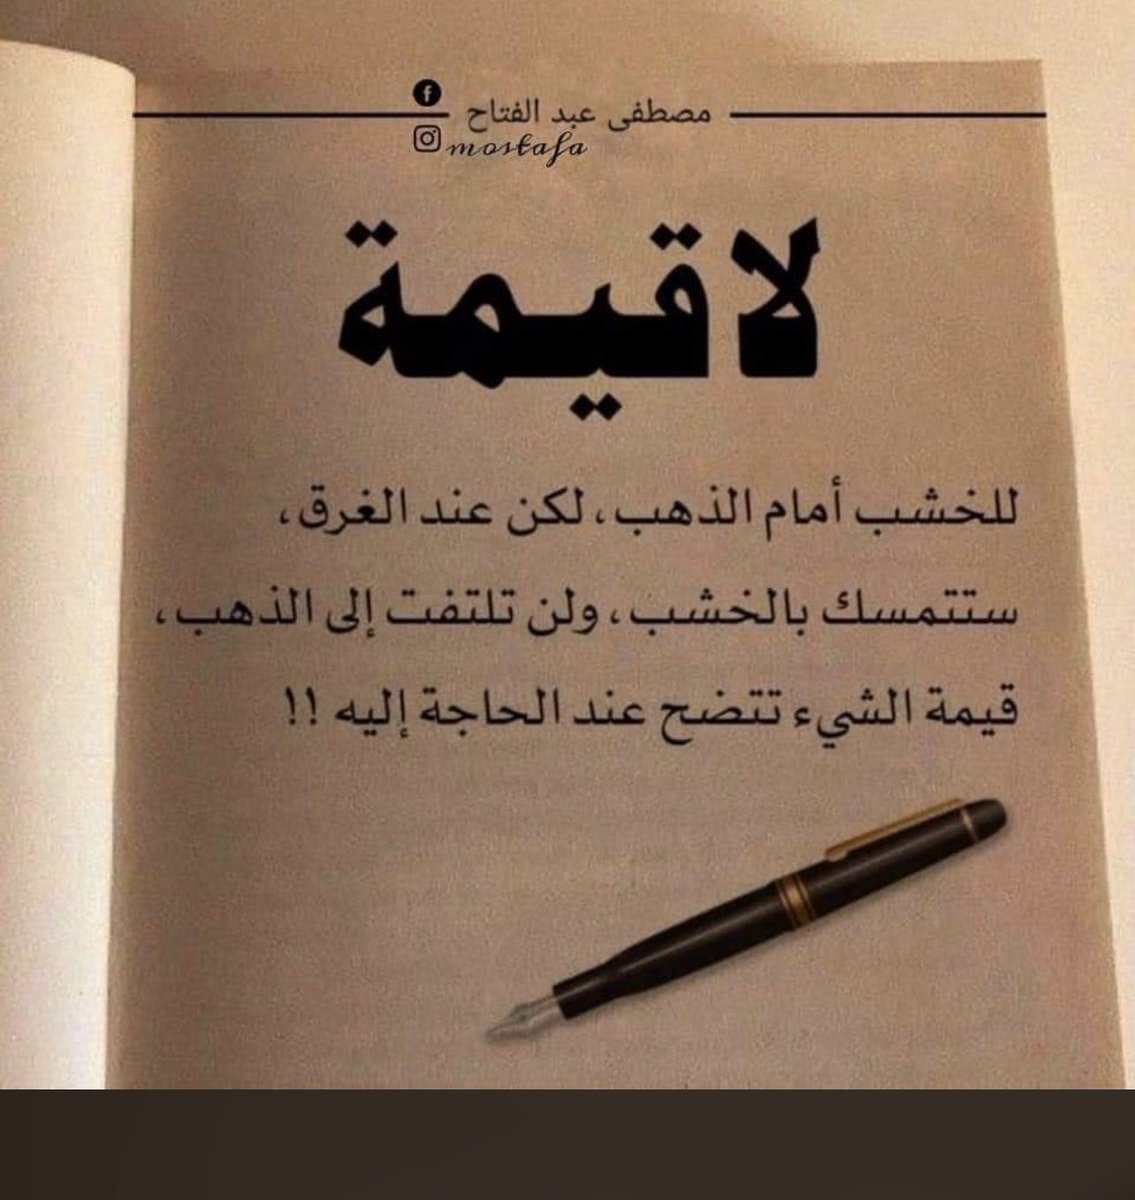 مصطفى عبد الفتاح
mostafa
لا قيمة
للخشب أمام الذهب، لكن عند الغرق،
ستتمسك بالخشب، ولن تلتفت إلى الذهب،
قيمة الشيء تتضح عند الحاجة إليه !!